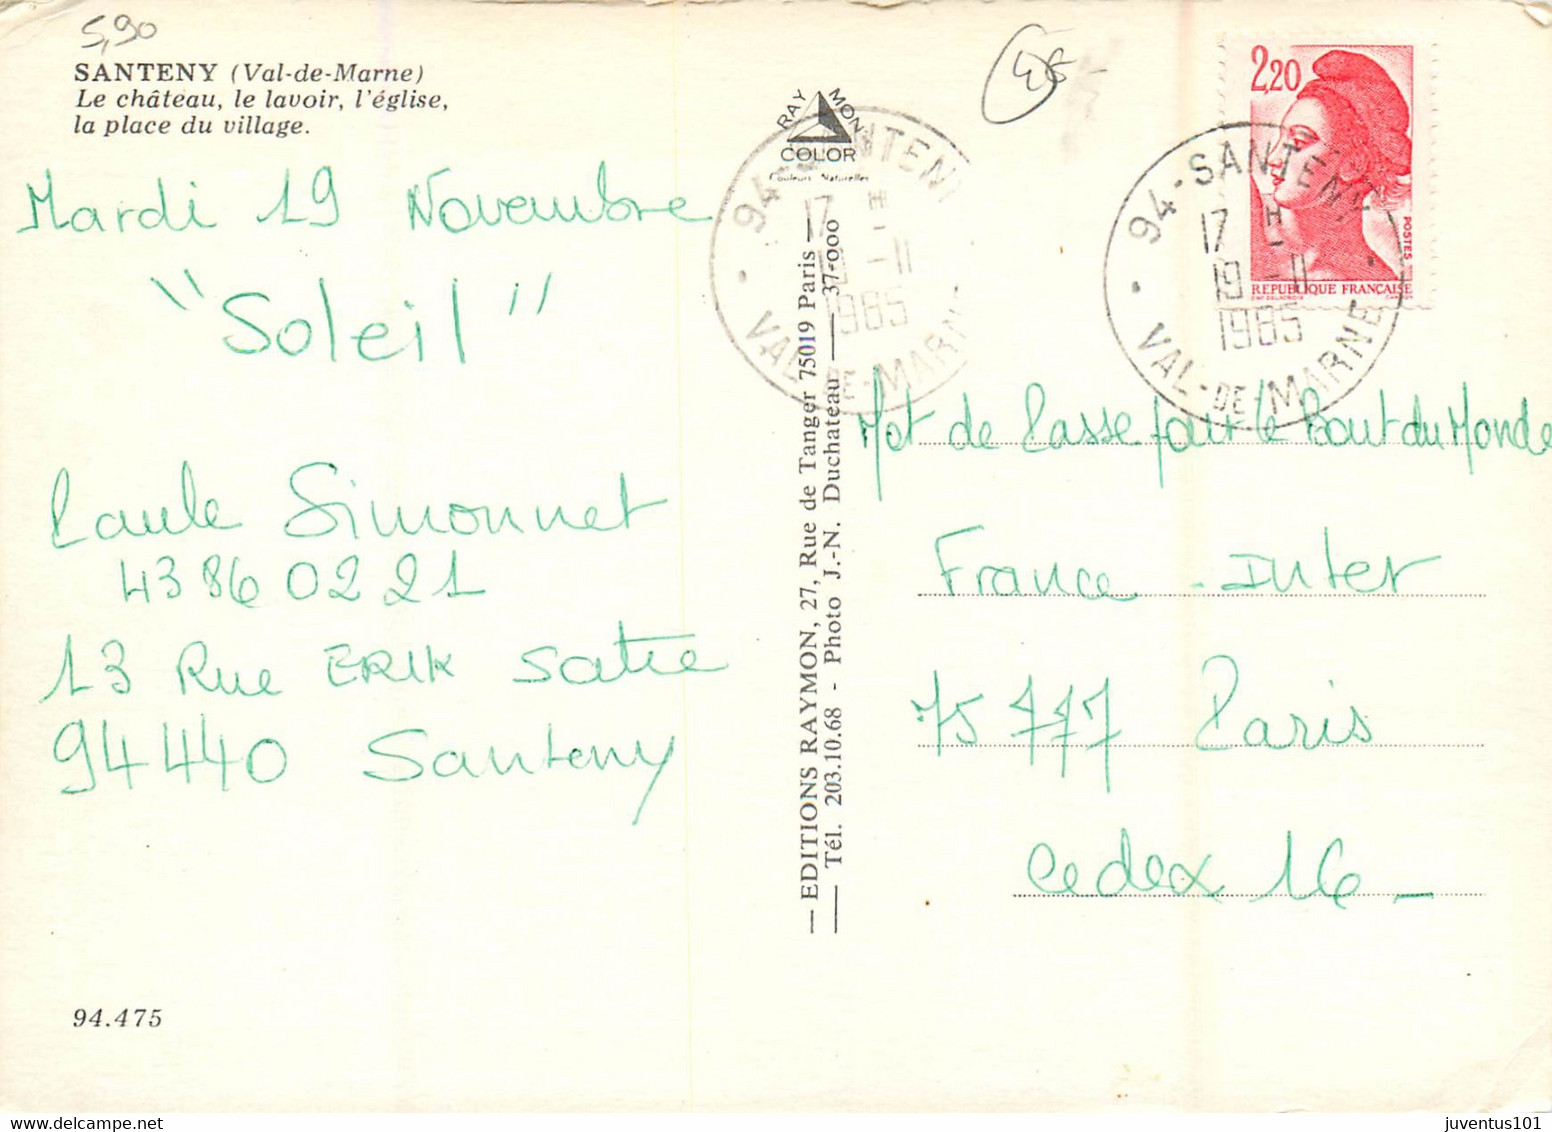 5,90
SANTENY (Val-de-Marne)
Le château, le lavoir, l'église,
la place du village.
Mardi 19 Novembre
"Soleil"
Paule Simonnet
43 86 02 21
13 Rue ERIK Satie
94440 Santeny
94.475
RAYMON
COLOR
Couleurs Naturelles
94-SANTENY
17 H
19-11
1985
VAL-DE-MARNE
EDITIONS RAYMON, 27, Rue de Tanger 75019 Paris
Tél. 203.10.68 - Photo J.-N. Duchateau 37-000
2,20
POSTES
REPUBLIQUE FRANÇAISE
94-SANTENY
17 H
19-11
1985
VAL-DE-MARNE
Mot de Passe pour le Bout du Monde
France-Inter
75777 Paris
Cedex 16-
juventus101